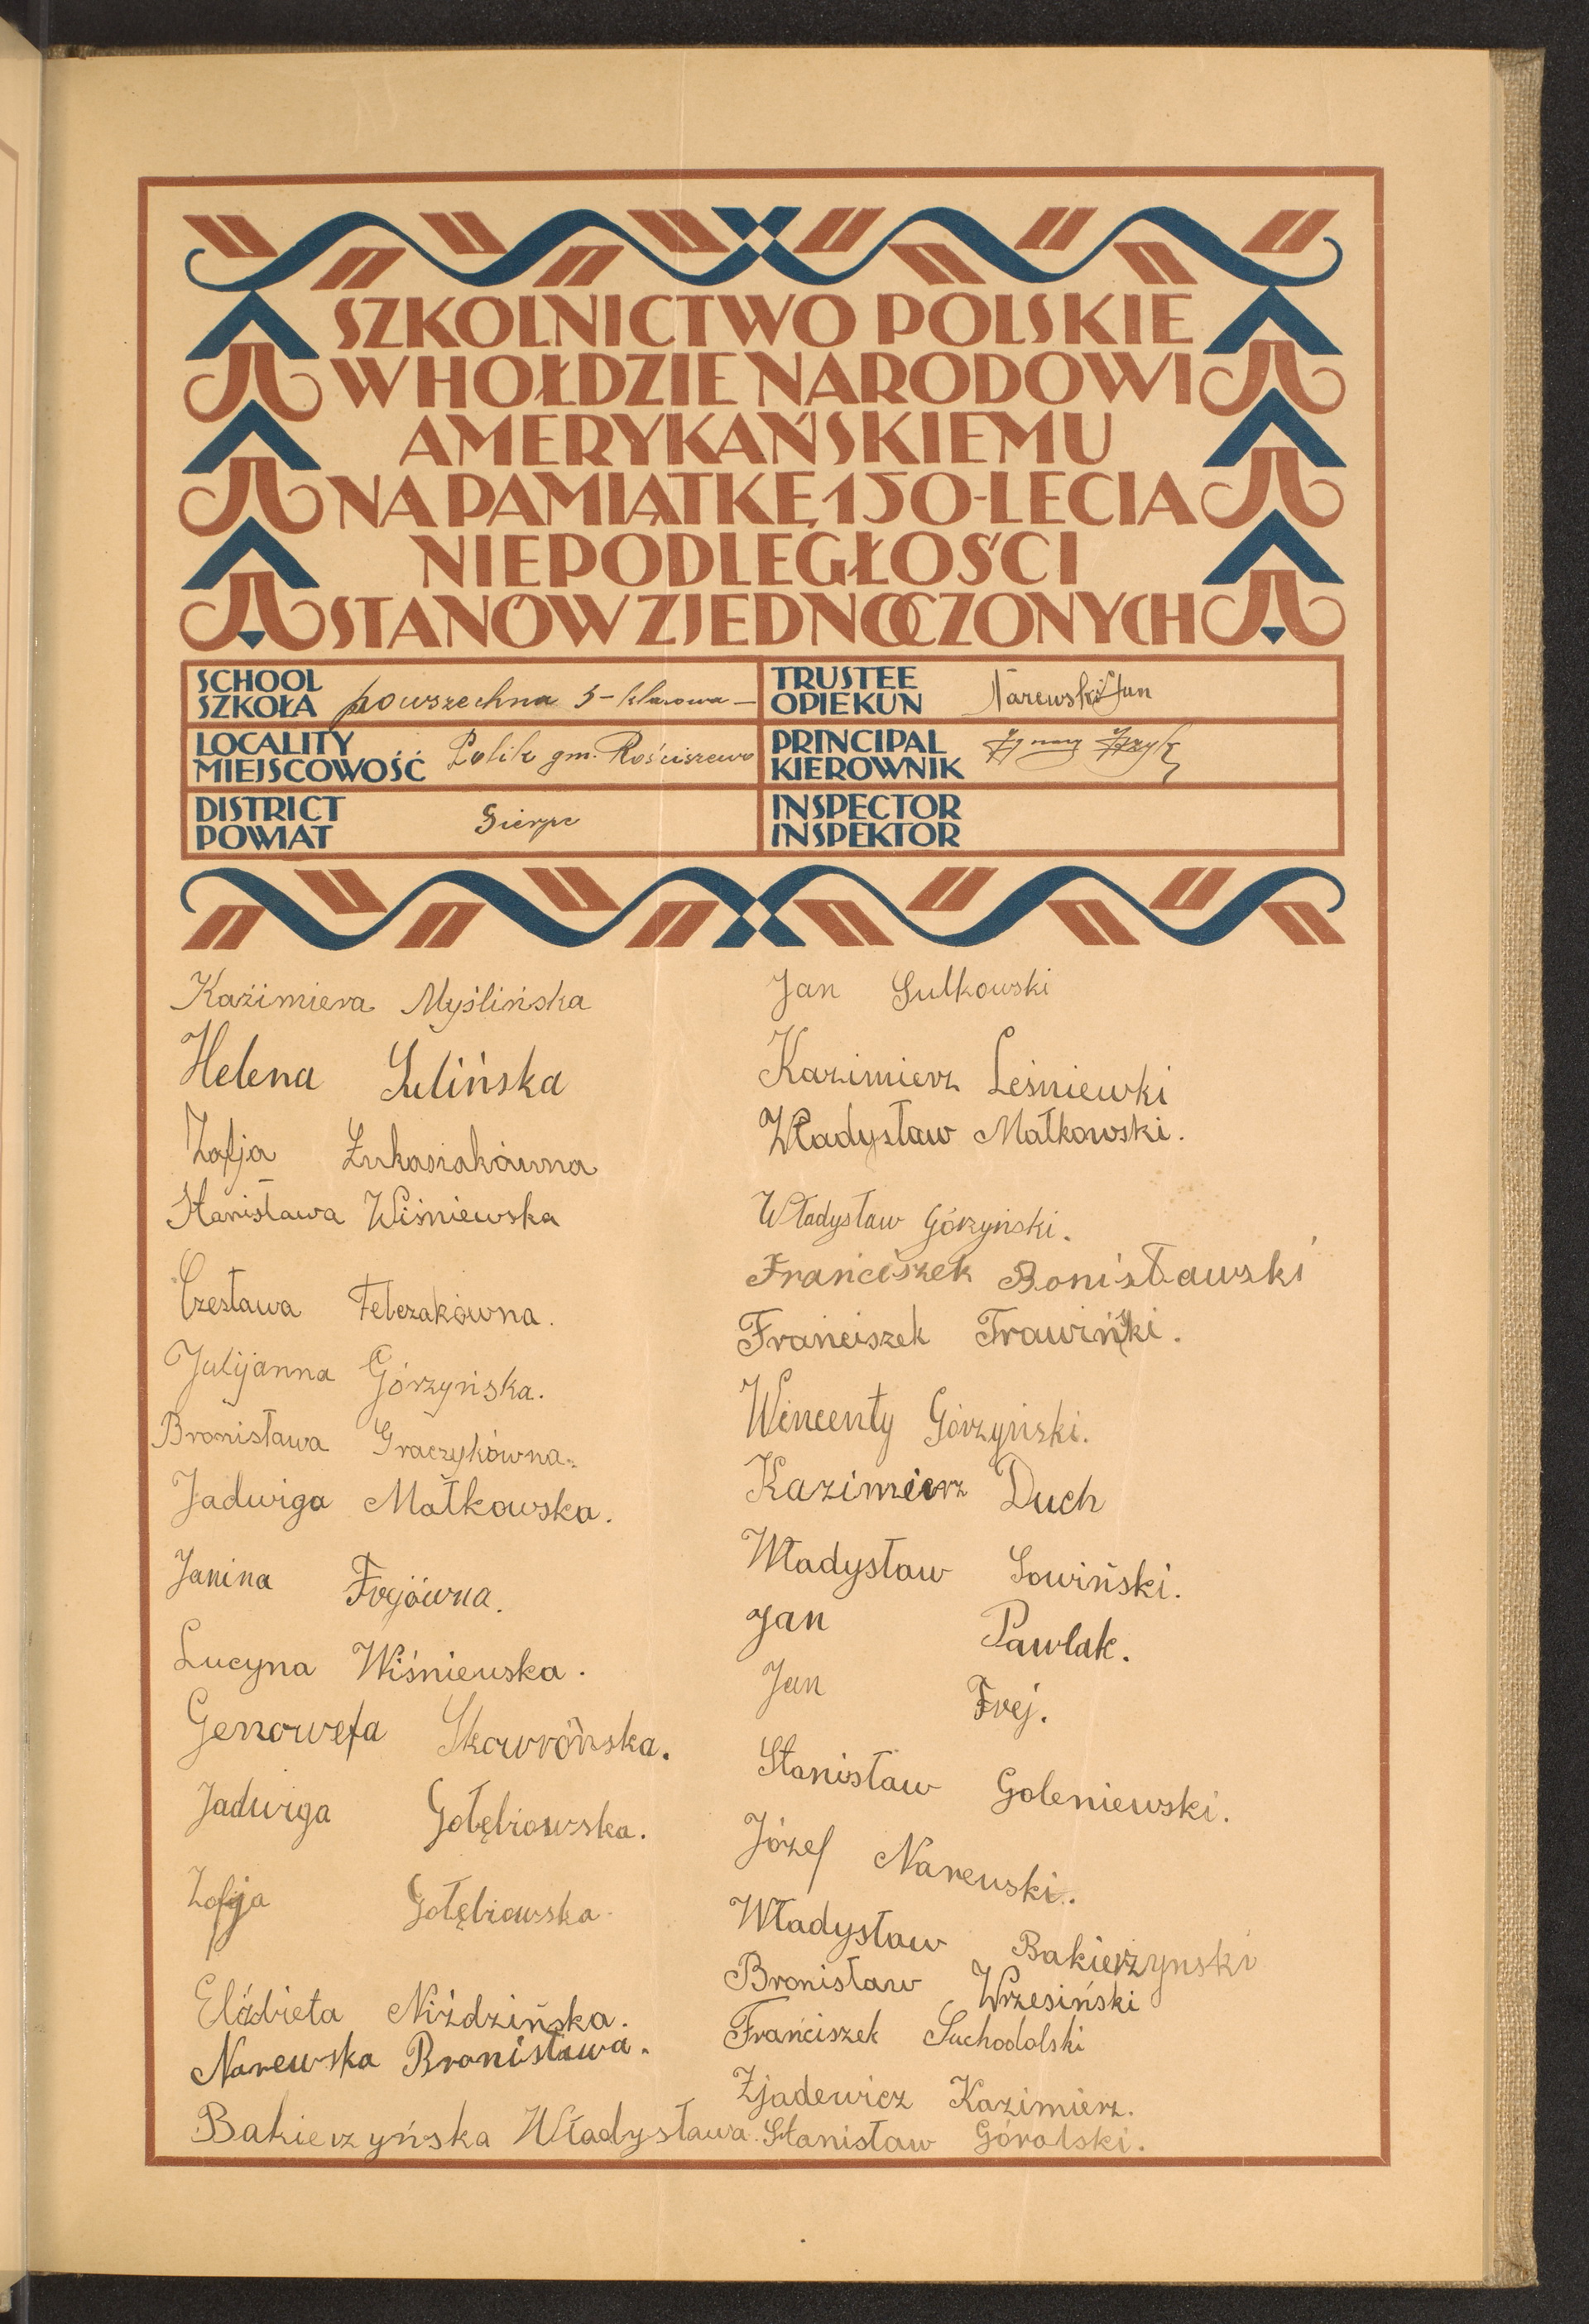 SZKOLNICTWO POLSKIE
W HOŁDZIE NARODOWI
AMERYKAŃSKIEMU
NA PAMIĄTKĘ 150-LECIA
NIEPODLEGŁOŚCI
STANÓW ZJEDNOCZONYCH
SCHOOL
SZKOŁA powszechna 5-klasowa -
TRUSTEE
OPIEKUN Narewski Jan
LOCALITY
MIEJSCOWOŚĆ Polik gm. Rościszewo
PRINCIPAL
KIEROWNIK
DISTRICT
POWIAT Sierpc
INSPECTOR
INSPEKTOR
Kaźimiera Myślińska
Helena Sulińska
Zofja Łukasiakówna
Stanisława Wiśniewska
Czesława Felczakówna.
Julijanna Górzyńska.
Bronisława Graczykówna.
Jadwiga Małkowska.
Janina Frejówna.
Lucyna Wiśniewska.
Genowefa Skowrońska.
Jadwiga Gołębiowska.
Zofja Gołębiowska.
Elżbieta Niździńska.
Narewska Bronisława.
Bakierzyńska Władysława.
Jan Sulkowski
Kazimierz Leśniewki
Władysław Małkowski.
Władysław Górzyński.
Franciszek Bonisławski
Franciszek Trawiński.
Wincenty Górzyński.
Kazimierz Duch
Władysław Sowiński.
Jan Pawlak.
Jan Frej.
Stanisław Goleniewski.
Józef Narewski.
Władysław Bakierzynski
Bronisław Wrzesiński
Franciszek Suchodolski
Zjadewicz Kazimierz.
Stanisław Góralski.